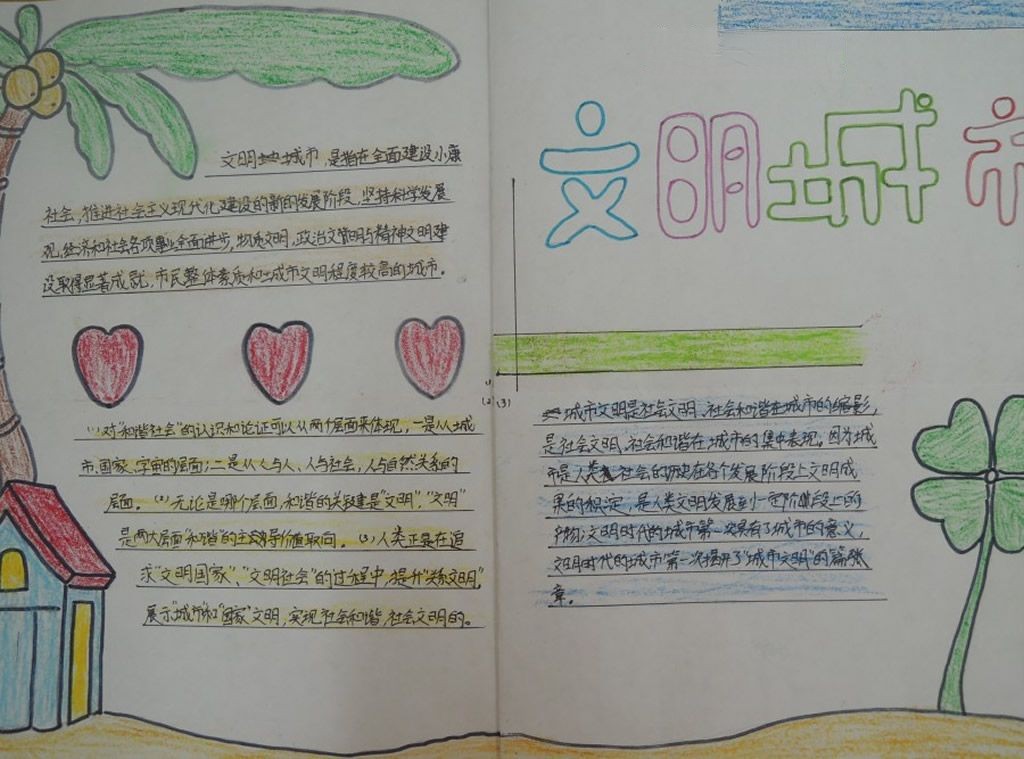 文明城市，是指在全面建设小康
社会，推进社会主义现代化建设的新的发展阶段，坚持科学发展
观，经济和社会各项事业全面进步，物质文明，政治文明与精神文明建
设取得显著成就，市民整体素质和城市文明程度较高的城市。
(1)对“和谐社会”的认识和论证可以从两个层面来体现，一是从城
市、国家、宇宙的层面；二是从人与人、人与社会，人与自然关系的
层面。(2)无论是哪个层面，和谐的关键是“文明”，“文明”
是两大层面“和谐”的主导价值取向。(3)人类正是在追
求“文明国家”，“文明社会”的过程中，提升“关系文明”，
展示“城市”和“国家”文明，实现社会和谐，社会文明的。
文明城市
(2)(3)
城市文明是社会文明、社会和谐在城市的缩影，
是社会文明、社会和谐在城市的集中表现。因为城
市是人类社会的历史在各个发展阶段上文明成
果的积淀，是人类文明发展到一定阶段上的
产物；文明时代的城市第一次具有了城市的意义，
文明时代的城市第一次掀开了“城市文明”的篇
章。